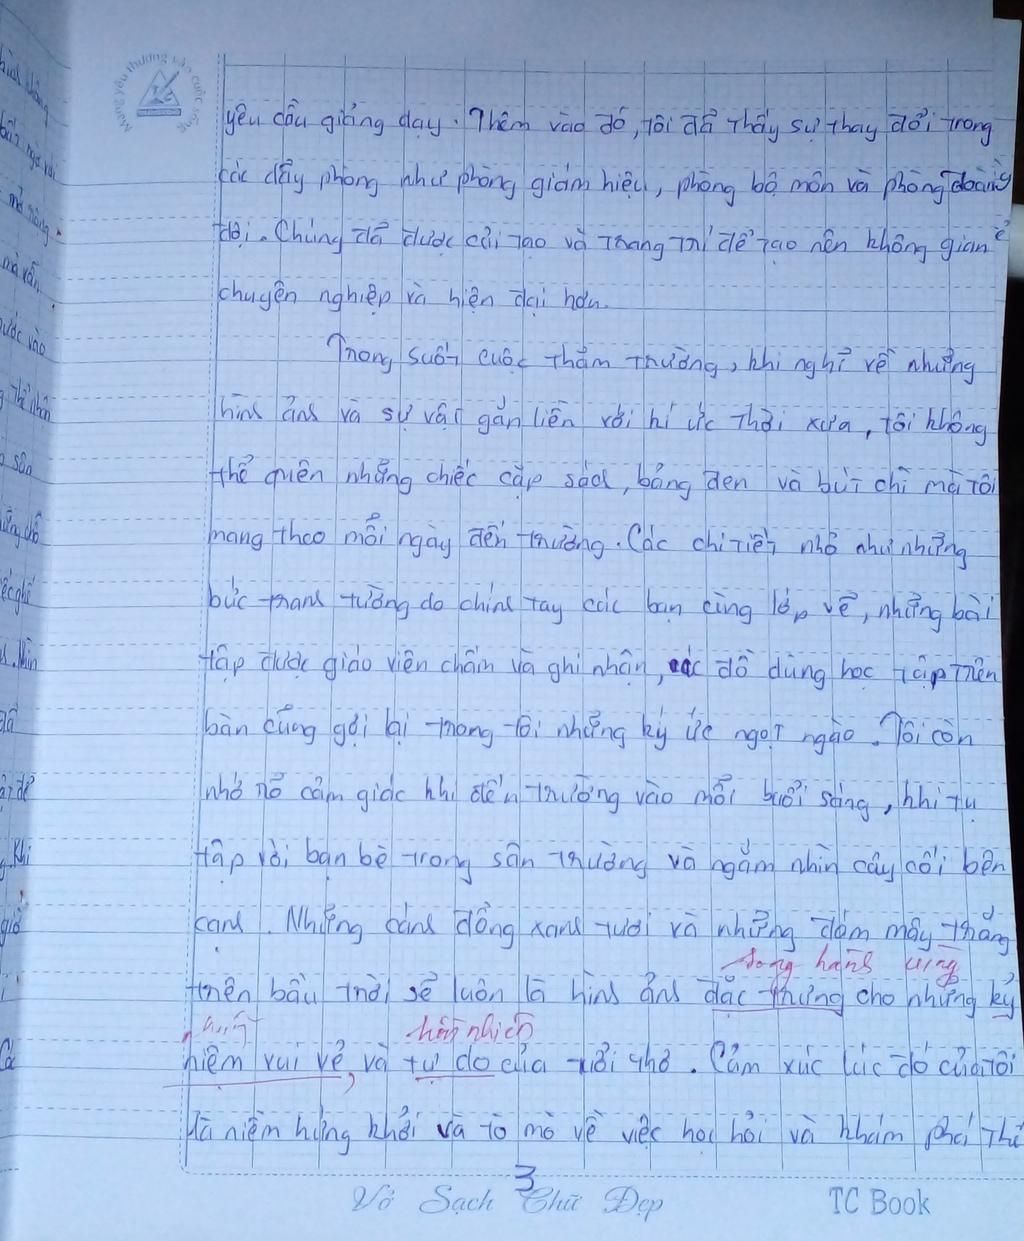 Mang yêu thương vào cuộc sống
yêu cầu giảng dạy. Thêm vào đó, tôi đã thấy sự thay đổi trong
các dãy phòng như phòng giám hiệu, phòng bộ môn và phòng đoàn
đội. Chúng đã được cải tạo và trang trí để tạo nên không gian
chuyên nghiệp và hiện đại hơn.
Trong suốt cuộc thăm trường, khi nghĩ về những
hình ảnh và sự vật gắn liền với kí ức thời xưa, tôi không
thể quên những chiếc cặp sách, bảng đen và bút chì mà tôi
mang theo mỗi ngày đến trường. Các chi tiết nhỏ như những
bức tranh tường do chính tay các bạn cùng lớp vẽ, những bài
tập được giáo viên chấm và ghi nhận, các đồ dùng học tập trên
bàn cũng gợi lại trong tôi những ký ức ngọt ngào. Tôi còn
nhớ rõ cảm giác khi đến trường vào mỗi buổi sáng, khi tụ
tập với bạn bè trong sân trường và ngắm nhìn cây cối bên
cạnh. Những cánh đồng xanh tươi và những đám mây trắng
song hành cùng
trên bầu trời sẽ luôn là hình ảnh đặc trưng cho những kỷ
hồn nhiên
niệm vui vẻ, và tự do của tuổi thơ. Cảm xúc lúc đó của tôi
là niềm hứng khởi và tò mò về việc học hỏi và khám phá thế
3
Vở Sạch Chữ Đẹp TC Book